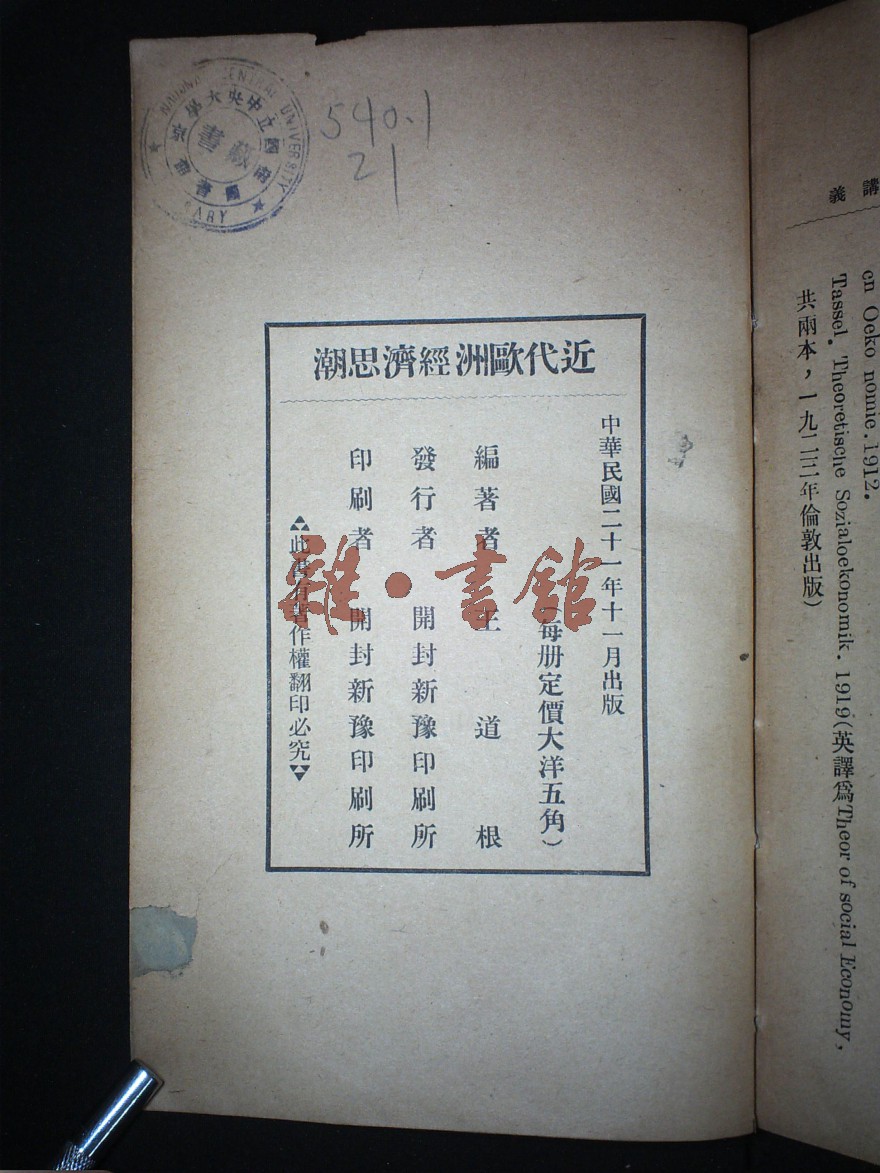 講義
en Oeko nomie.1912.
Tassel. Theoretische Sozialoekonomik. 1919(英譯爲Theor of social Economy,
共兩本，一九二三年倫敦出版)
CENTRAL UNIVERSITY
國立中央大學
藏書
540.1
21
近代歐洲經濟思潮
中華民國二十一年十一月出版
(每册定價大洋五角)
編著者 王道根
發行者 開封新豫印刷所
印刷者 開封新豫印刷所
此書有著作權翻印必究
雜·書館